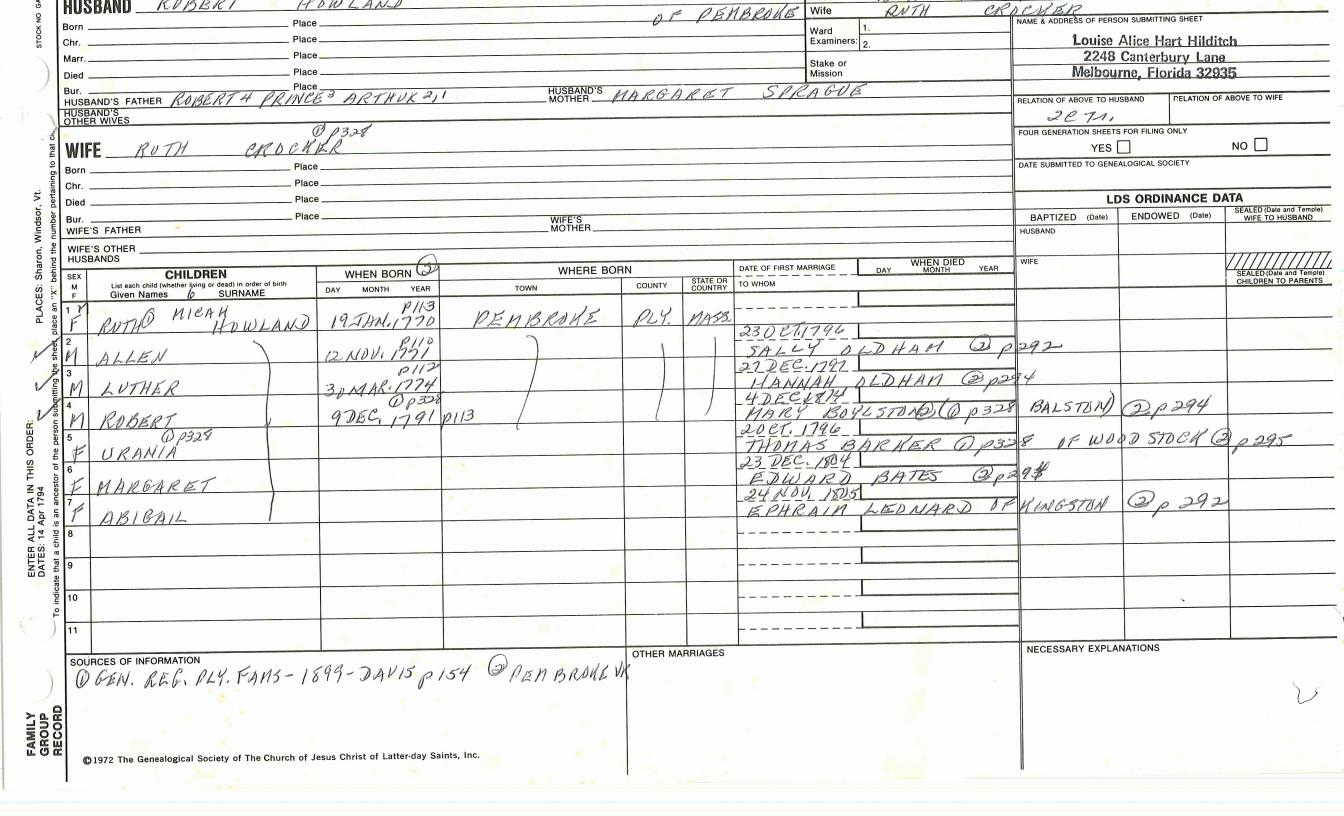 HUSBAND ROBERT HOWLAND OF PEMBROKE
Wife RUTH CROCKER
Born Place
Chr. Place
Marr. Place
Died Place
Bur. Place
Ward Examiners: 1.
2.
Stake or Mission
NAME & ADDRESS OF PERSON SUBMITTING SHEET
Louise Alice Hart Hilditch
2248 Canterbury Lane
Melbourne, Florida 32935
HUSBAND'S FATHER ROBERT4 PRINCE3 ARTHUR2,1 HUSBAND'S MOTHER MARGARET SPRAGUE
HUSBAND'S OTHER WIVES
RELATION OF ABOVE TO HUSBAND RELATION OF ABOVE TO WIFE
FOUR GENERATION SHEETS FOR FILING ONLY
YES NO
DATE SUBMITTED TO GENEALOGICAL SOCIETY
① p328
WIFE RUTH CROCKER
Born Place
Chr. Place
Died Place
Bur. Place
WIFE'S FATHER WIFE'S MOTHER
WIFE'S OTHER HUSBANDS
LDS ORDINANCE DATA
BAPTIZED (Date) ENDOWED (Date) SEALED (Date and Temple) WIFE TO HUSBAND
HUSBAND
WIFE
SEALED (Date and Temple) CHILDREN TO PARENTS
SEX M F
CHILDREN
List each child (whether living or dead) in order of birth
Given Names 6 SURNAME
WHEN BORN ②
DAY MONTH YEAR
WHERE BORN
TOWN COUNTY STATE OR COUNTRY
DATE OF FIRST MARRIAGE
TO WHOM
WHEN DIED
DAY MONTH YEAR
1 F RUTH① MICAH HOWLAND p113 19 JAN. 1770 PEMBROKE PLY. MASS.
2 M ALLEN p110 12 NOV. 1771 23 OCT. 1796 SALLY OLDHAM ② p292
3 M LUTHER p112 30 MAR. 1774 27 DEC. 1797 HANNAH OLDHAM ② p294
4 M ROBERT ① p328 9 DEC. 1791 p113 4 DEC 1814 MARY BOYLSTON② (① p328 BALSTON) ② p294
5 F URANIA ① p328 2 OCT. 1796 THOMAS BARKER ① p328 OF WOODSTOCK ② p295
6 F MARGARET 23 DEC. 1804 EDWARD BATES ② p294
7 F ABIGAIL 24 NOV. 1805 EPHRAIM LEONARD OF KINGSTON ② p292
8
9
10
11
SOURCES OF INFORMATION
① GEN. REG. PLY. FAMS - 1899 - DAVIS p154 ② PEMBROKE VR
OTHER MARRIAGES
NECESSARY EXPLANATIONS
©1972 The Genealogical Society of The Church of Jesus Christ of Latter-day Saints, Inc.
FAMILY GROUP RECORD
ENTER ALL DATA IN THIS ORDER:
DATES: 14 Apr 1794
PLACES: Sharon, Windsor, Vt.
To indicate that a child is an ancestor of the person submitting the sheet, place an "X" behind the number pertaining to that
STOCK NO